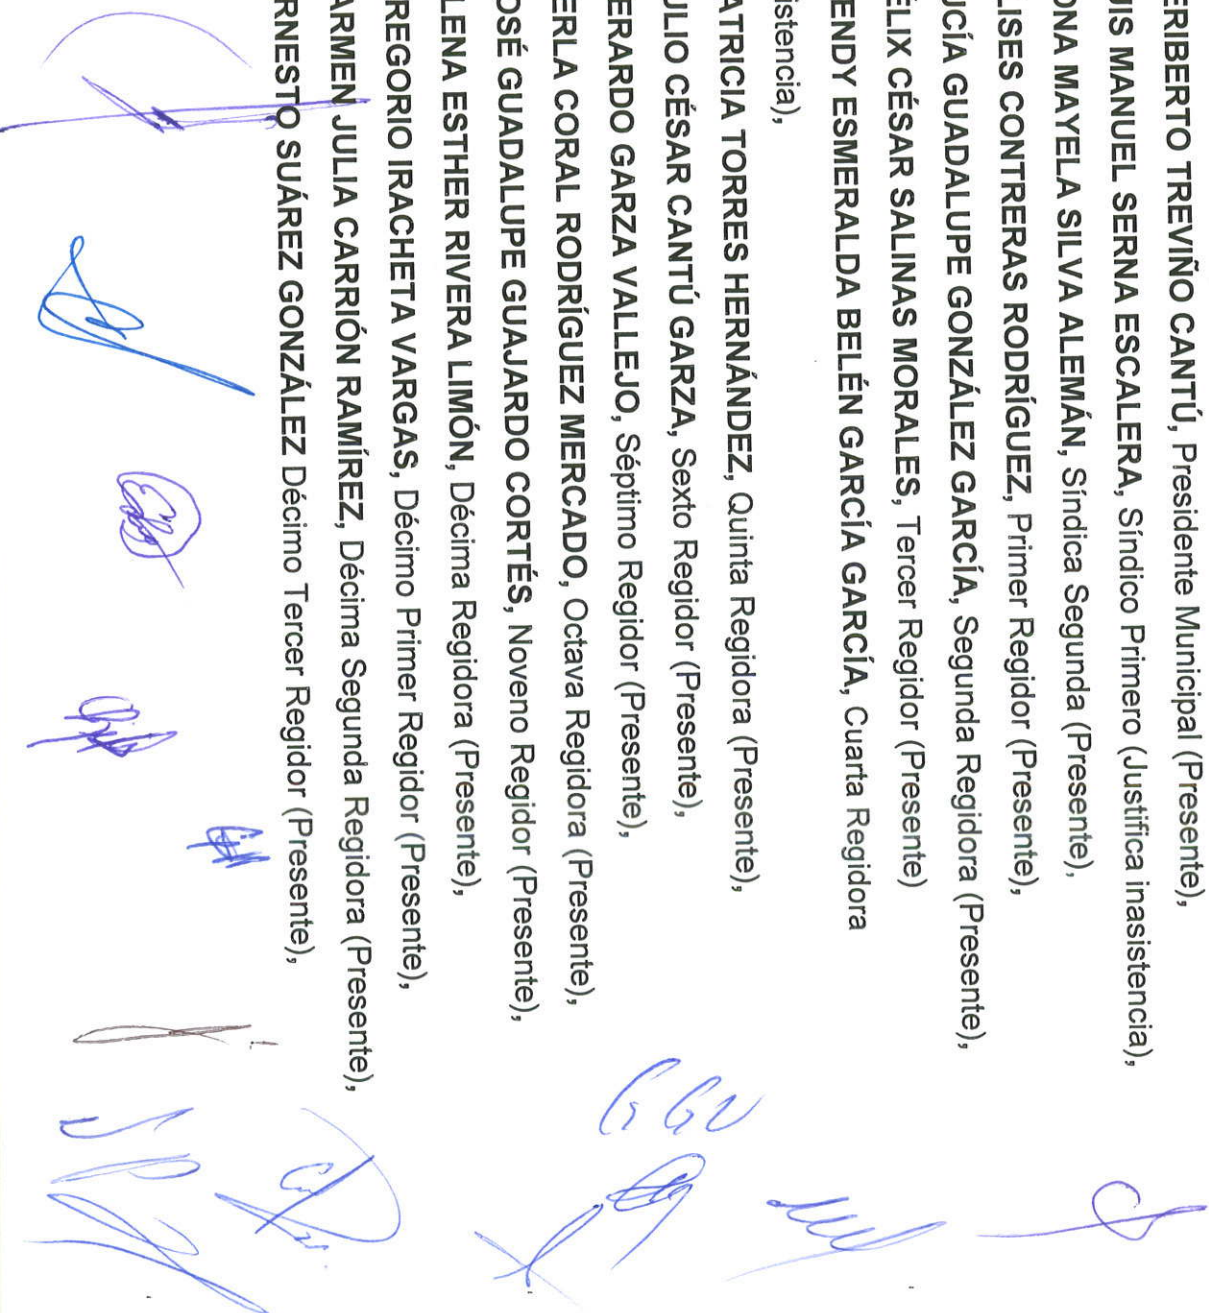 ERIBERTO TREVIÑO CANTÚ, Presidente Municipal (Presente),
UIS MANUEL SERNA ESCALERA, Síndico Primero (Justifica inasistencia),
ONA MAYELA SILVA ALEMÁN, Síndica Segunda (Presente),
LISES CONTRERAS RODRÍGUEZ, Primer Regidor (Presente),
UCÍA GUADALUPE GONZÁLEZ GARCÍA, Segunda Regidora (Presente),
ÉLIX CÉSAR SALINAS MORALES, Tercer Regidor (Presente)
ENDY ESMERALDA BELÉN GARCÍA GARCÍA, Cuarta Regidora
istencia),
ATRICIA TORRES HERNÁNDEZ, Quinta Regidora (Presente),
ULIO CÉSAR CANTÚ GARZA, Sexto Regidor (Presente),
ERARDO GARZA VALLEJO, Séptimo Regidor (Presente),
ERLA CORAL RODRÍGUEZ MERCADO, Octava Regidora (Presente),
OSÉ GUADALUPE GUAJARDO CORTÉS, Noveno Regidor (Presente),
LENA ESTHER RIVERA LIMÓN, Décima Regidora (Presente),
REGORIO IRACHETA VARGAS, Décimo Primer Regidor (Presente),
ARMEN JULIA CARRIÓN RAMÍREZ, Décima Segunda Regidora (Presente),
RNESTO SUÁREZ GONZÁLEZ Décimo Tercer Regidor (Presente),
GGV